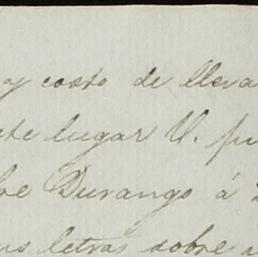 y costo de lleva
ste lugar V. pu
bre Durango á
us letras sobre